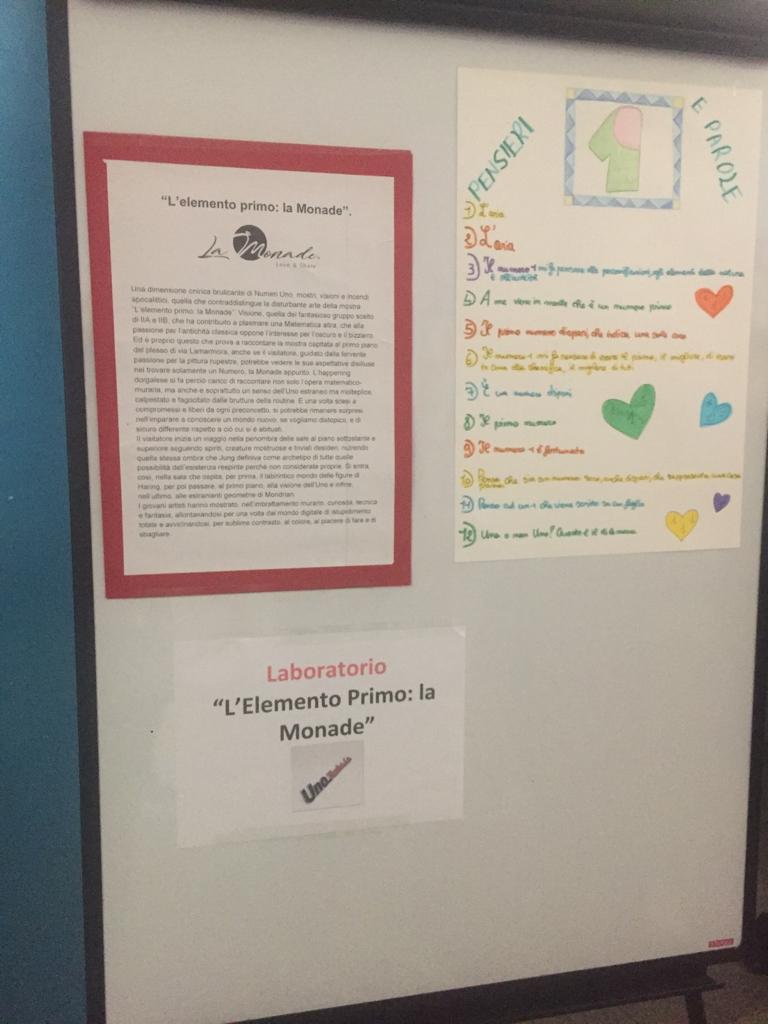 "L'elemento primo: la Monade".
La Monade
Love & Share
Una dimensione onirica brulicante di Numeri Uno, mostri, visioni e incendi
apocalittici, quella che contraddistingue la disturbante arte della mostra
"L'elemento primo: la Monade". Visione, quella del fantasioso gruppo scelto
di IIA e IIB, che ha contribuito a plasmare una Matematica altra, che alla
passione per l'antichità classica oppone l'interesse per l'oscuro e il bizzarro.
Ed è proprio questo che prova a raccontare la mostra ospitata al primo piano
del plesso di via Lamarmora, anche se il visitatore, guidato dalla fervente
passione per la pittura rupestre, potrebbe vedere le sue aspettative disilluse
nel trovare solamente un Numero, la Monade appunto. L'happening
dorgalese si fa perciò carico di raccontare non solo l'opera matematico-
muraria, ma anche e soprattutto un senso dell'Uno estraneo ma molteplice,
calpestato e fagocitato dalle brutture della routine. E una volta scesi a
compromessi e liberi da ogni preconcetto, si potrebbe rimanere sorpresi
nell'imparare a conoscere un mondo nuovo, se vogliamo distopico, e di
sicuro differente rispetto a ciò cui si è abituati.
Il visitatore inizia un viaggio nella penombra delle sale al piano sottostante e
superiore seguendo spiriti, creature mostruose e triviali desideri, nutrendo
quella stessa ombra che Jung definiva come archetipo di tutte quelle
possibilità dell'esistenza respinte perché non considerate proprie. Si entra,
così, nella sala che ospita, per prima, il labirintico mondo delle figure di
Haring, per poi passare, al primo piano, alla visione dell'Uno e infine,
nell'ultimo, alle estranianti geometrie di Mondrian.
I giovani artisti hanno mostrato, nell'imbrattamento murario, curiosità, tecnica
e fantasia, allontanandosi per una volta dal mondo digitale di istupidimento
totale e avvicinandosi, per sublime contrasto, al colore, al piacere di fare e di
sbagliare.
PENSIERI E PAROLE
1) L'aria
2) L'aria
3) Il numero 1 mi fa pensare alla personificazione, agli elementi della natura
4) A me viene in mente che è un numero primo
5) Il primo numero dispari, che indica una sola cosa
6) Il numero 1 mi fa pensare di essere il primo, il migliore, di essere
in cima alla classifica, il migliore di tutti
7) È un numero dispari
8) Il primo numero
9) Il numero 1 è fortunato
10) Penso che sia un numero dispari, che rappresenta una cosa
11) Penso ad un 1 che viene scritto su un foglio
12) Uno o non Uno? Questo è il dilemma
Laboratorio
"L'Elemento Primo: la
Monade"
Uno